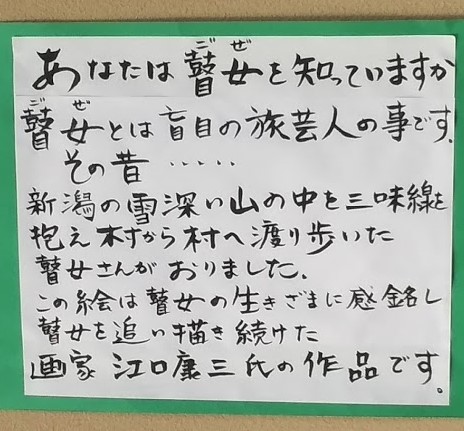 ごぜ
あなたは瞽女を知っていますか
ごぜ
瞽女とは盲目の旅芸人の事です。
その昔‥‥‥
新潟の雪深い山の中を三味線を
抱え村から村へ渡り歩いた
瞽女さんがおりました。
この絵は瞽女の生きざまに感銘し
瞽女を追い描き続けた
画家 江口康三氏の作品です。